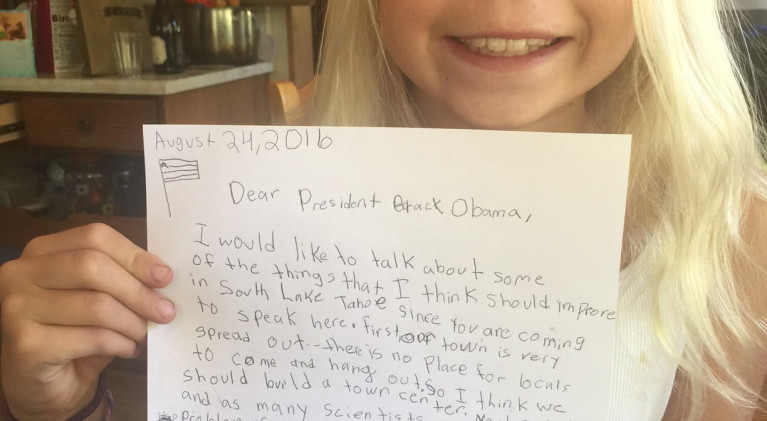 August 24,2016
Dear President Barack Obama,
I would like to talk about some
of the things that I think should improve
in South Lake Tahoe since You are coming
to speak here. First our town is very
spread out--there is no Place for locals
to come and hang out. So I think we
should build a town center.
and as many scientists